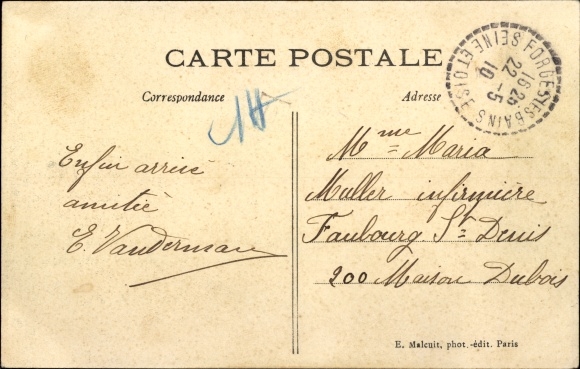 CARTE POSTALE
Correspondance
Adresse
FORGES LES BAINS
SEINE ET OISE
16 25
22 - 5
10
Enfin arrivé
amitié
E. Vanderman
Mme Maria
Muller infirmière
Faubourg St Denis
200 Maison Dubois
E. Malcuit, phot.-édit. Paris